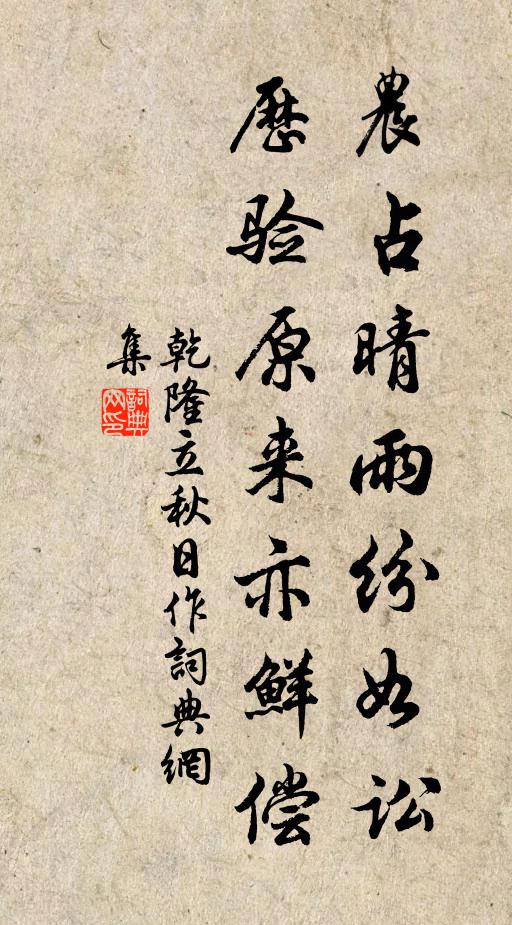 農占晴雨紛如訟
歷验原来亦鮮偿
乾隆立秋日作詞典網
集
詞典
网印